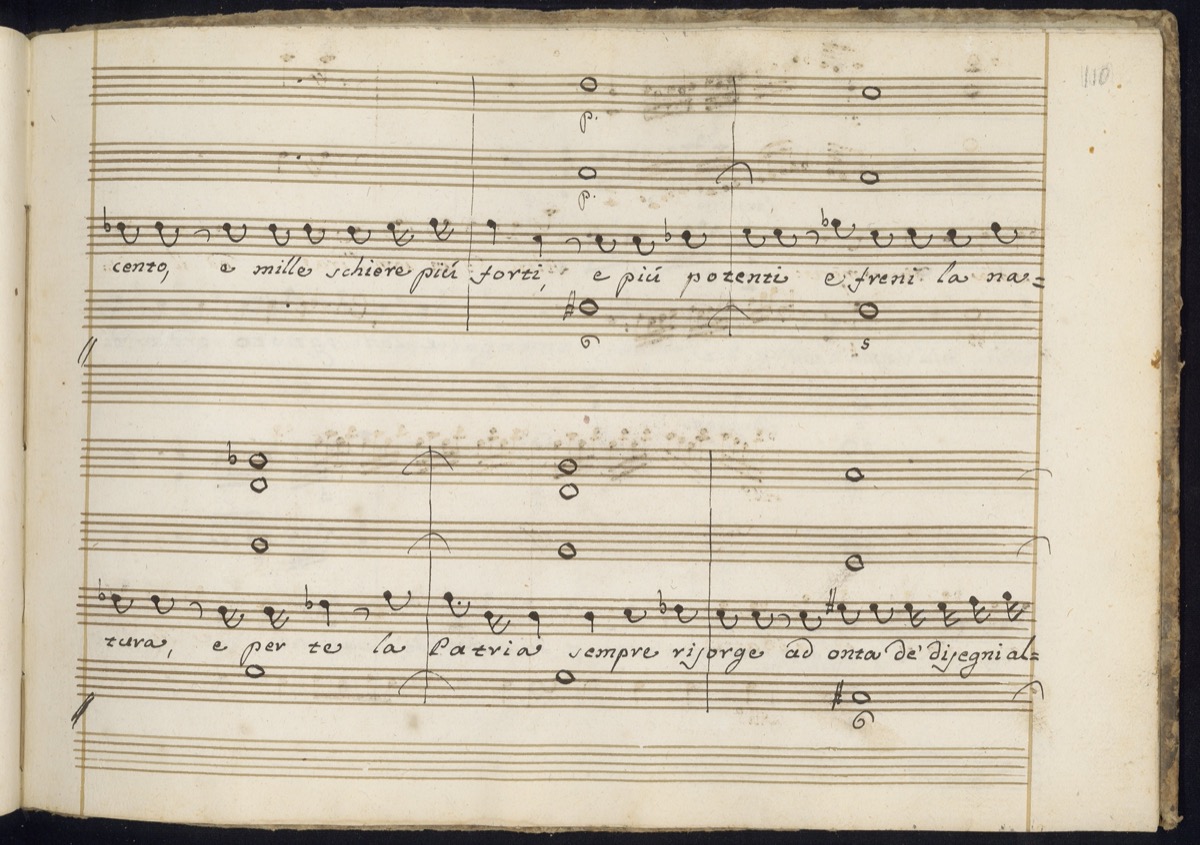 110
p.
p.
cento, e mille schiere più forti, e più potenti e freni la na=
6
5
tura, e per te la Patria sempre risorge ad onta de' disegni al=
6